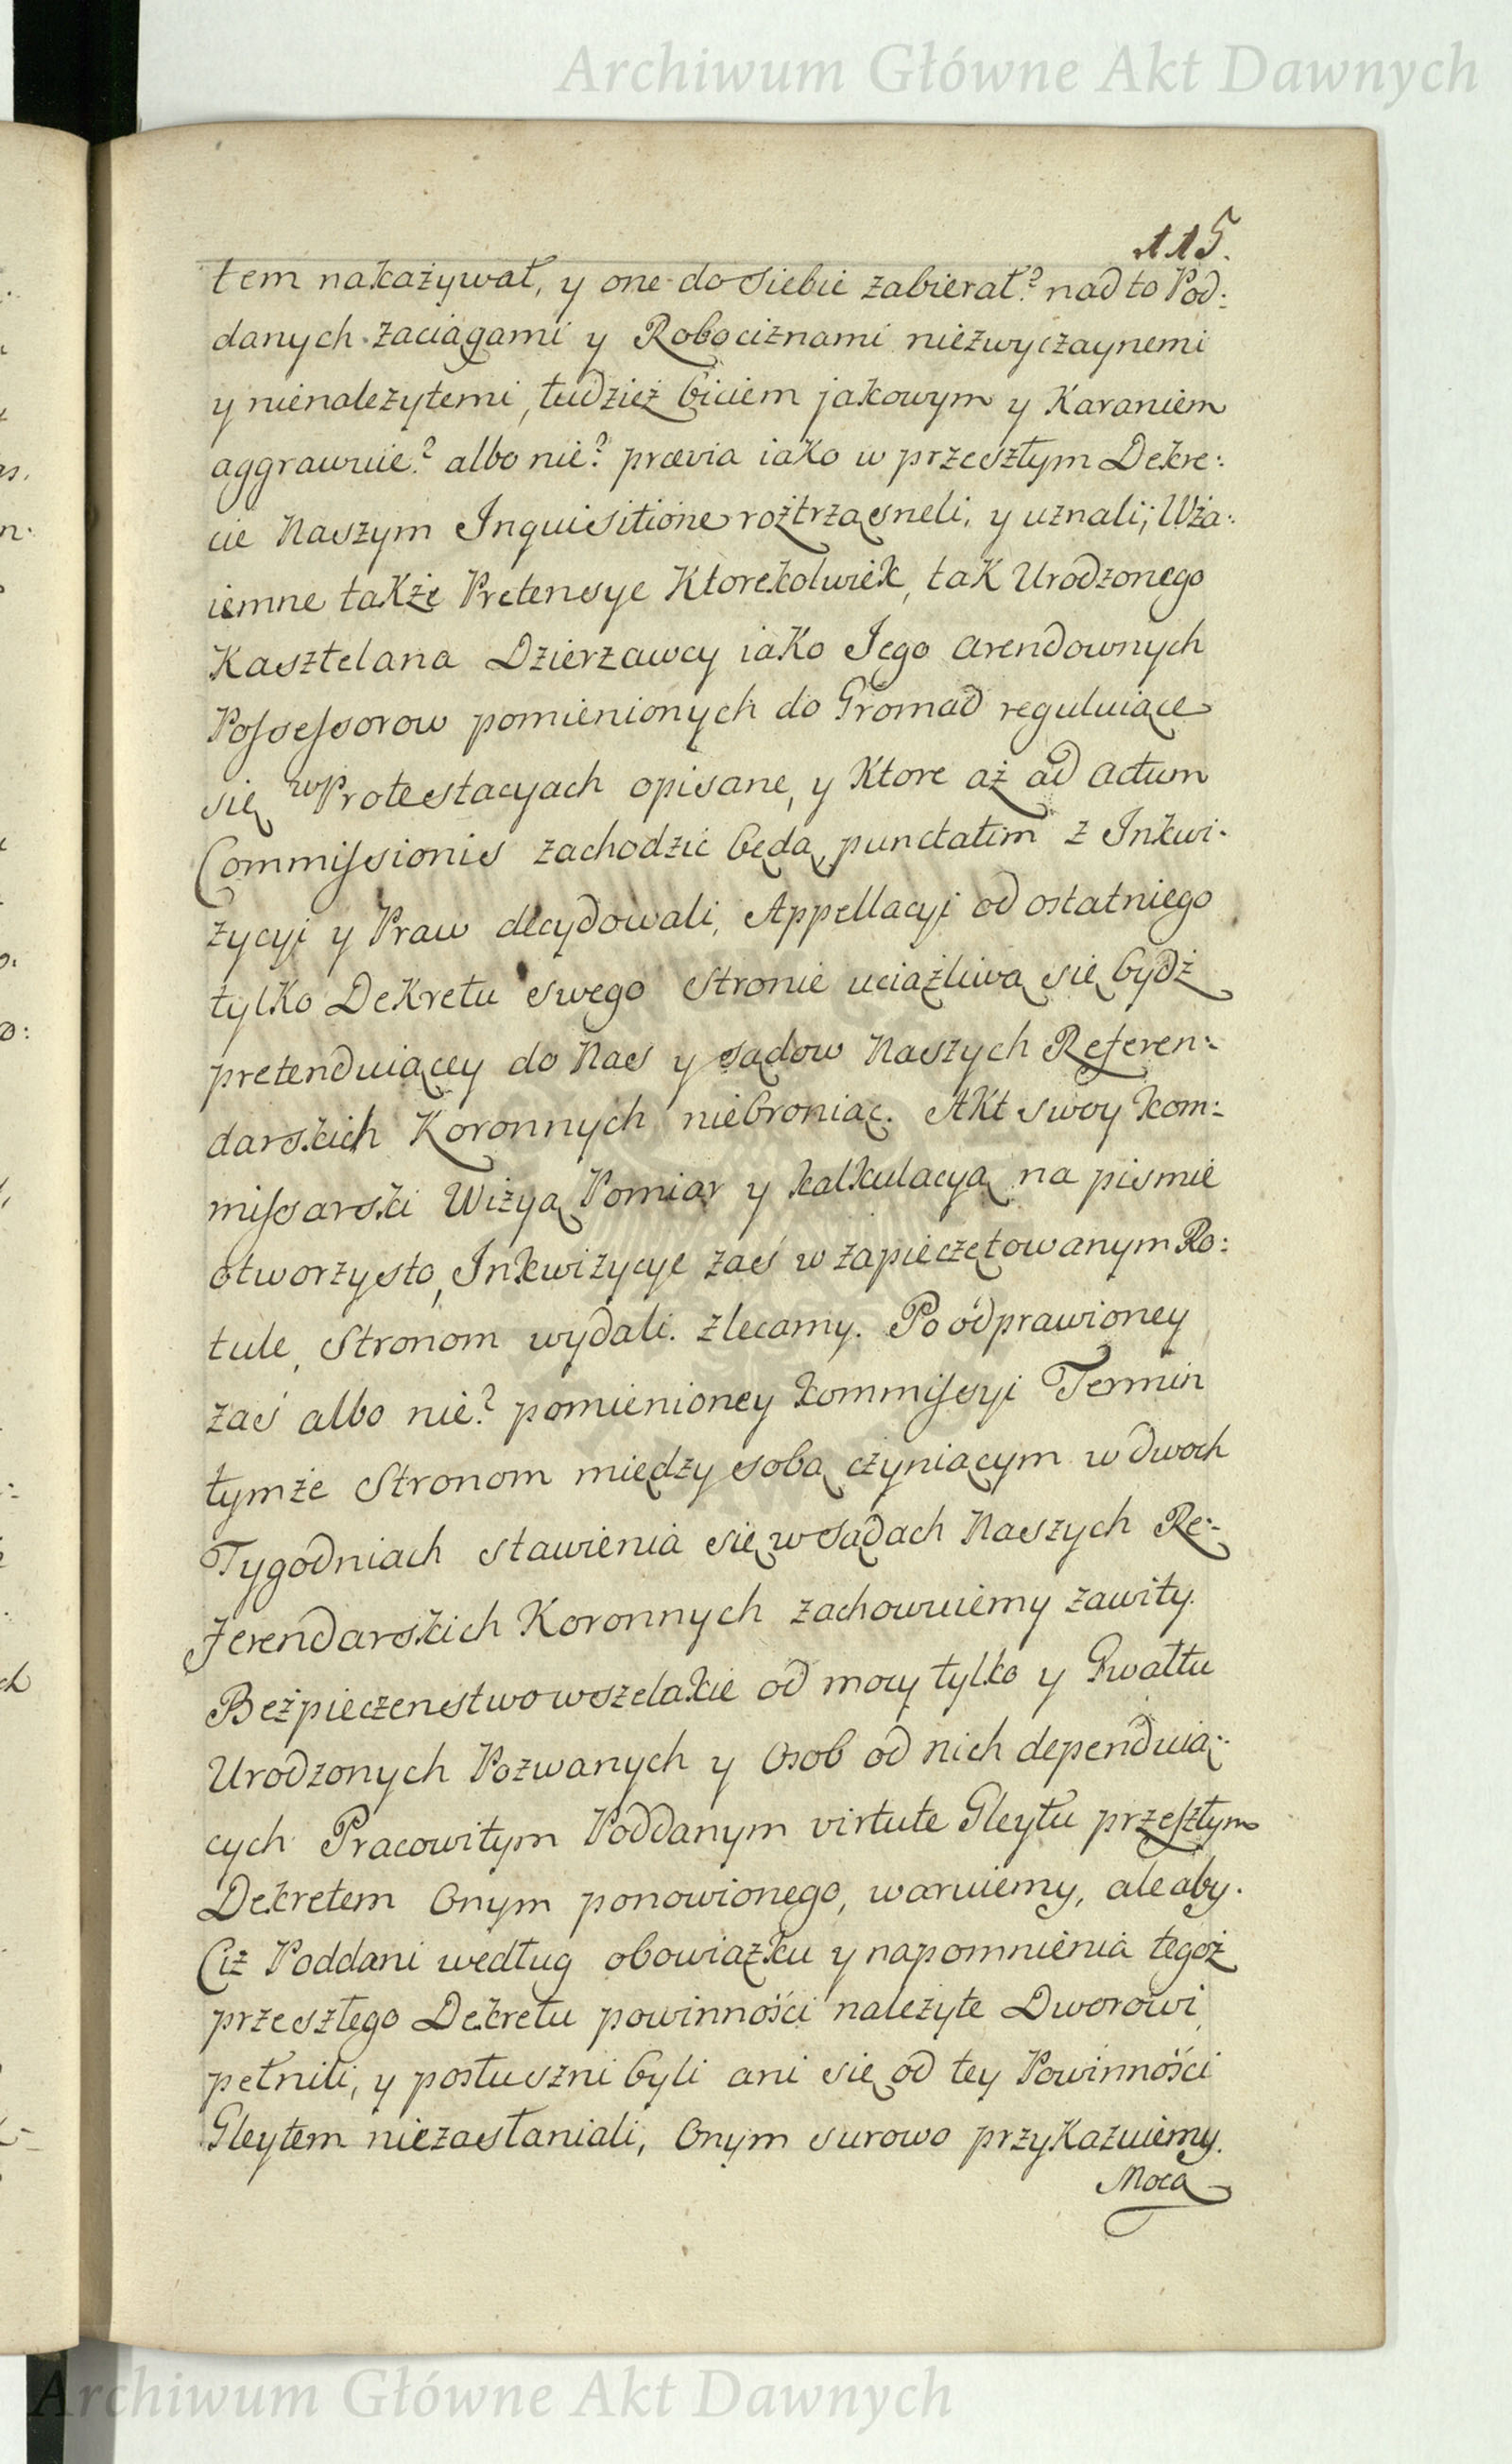 Archiwum Główne Akt Dawnych
115.
tem nakażywał, y one do siebie zabierał? nad to Pod:
danych zaciągami y Robociznami niezwyczaynemi
y nienależytemi, tudzież biciem jakowym y Karaniem
aggrawuie? albo nie? prævia iako w przeszłym Dekre:
cie Naszym Inquisitione roztrząsneli, y uznali; Wza:
iemne także Pretensye Ktorekolwiek, tak Urodzonego
Kasztelana Dzierzawcy iako Jego arendownych
Possessorow pomienionych do Gromad reguluiące
się w Protestacyach opisane, y Ktore aż ad actum
Commissionis zachodzić będą, punctatim z Inkwi:
zycyi y Praw decydowali, Appellacyi od ostatniego
tylko Dekretu swego Stronie uciążliwą się bydź
pretenduiącey do Nas y sądow Naszych Referen:
darskich Koronnych niebroniąc. Akt swoy kom:
missarski Wizyą Pomiar y kalkulacyą na pismie
otworzysto, Inkwizycye zaś w zapieczętowanym Ro:
tule, Stronom wydali. zlecamy. Po odprawioney
zaś albo nie? pomienioney kommissyi Termin
tymże Stronom między sobą czyniącym w dwoch
Tygodniach stawienia się w Sądach Naszych Re:
ferendarskich Koronnych zachowuiemy zawity.
Bezpieczenstwo wszelakie od mocy tylko y Gwałtu
Urodzonych Pozwanych y Osob od nich dependuią:
cych Pracowitym Poddanym virtute Gleytu przeszłym
Dekretem Onym ponowionego, waruiemy, ale aby.
Ciż Poddani według obowiązku y napomnienia tegoż
przeszłego Dekretu powinności należyte Dworowi,
pełnili, y posłuszni byli ani się od tey Powinności
Gleytem niezasłaniali, Onym surowo przykazuiemy.
Mocą
Archiwum Główne Akt Dawnych